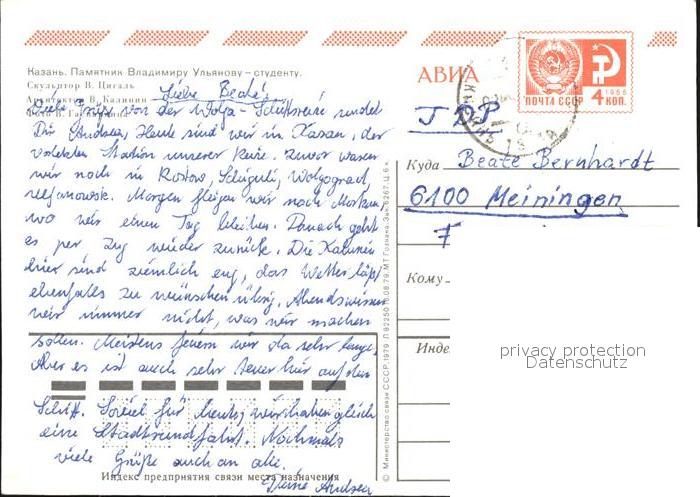 Казань. Памятник Владимиру Ульянову — студенту.
Скульптор В. Цигаль
Архитектор В. Калинин
Liebe Beate!
Liebe Grüße von der Wolga-Schiffsreise sendet
Dir Andrea. Heute sind wir in Kasan, der
vorletzten Station unserer Reise. Zuvor waren
wir noch in Rostow, Shiguli, Wolgograd,
Uljanowsk. Morgen fliegen wir nach Moskau,
wo wir einen Tag bleiben. Danach geht
es per Zug wieder zurück. Die Kabinen
hier sind ziemlich eng, das Wetter läßt
ebenfalls zu wünschen übrig. Abends wissen
wir immer nicht, was wir machen
sollen. Meistens feiern wir da sehr lange.
Aber es ist auch sehr teuer hier auf dem
Schiff. Soviel für heute, wir haben gleich
eine Stadtrundfahrt. Nochmals
viele Grüße auch an alle.
Deine Andrea
Индекс предприятия связи места назначения
© Министерство связи СССР, 1979
АВИА
ПОЧТА СССР
1966
4 КОП.
DDR
Куда
Beate Bernhardt
6100 Meiningen
Кому
Инде
privacy protection
Datenschutz